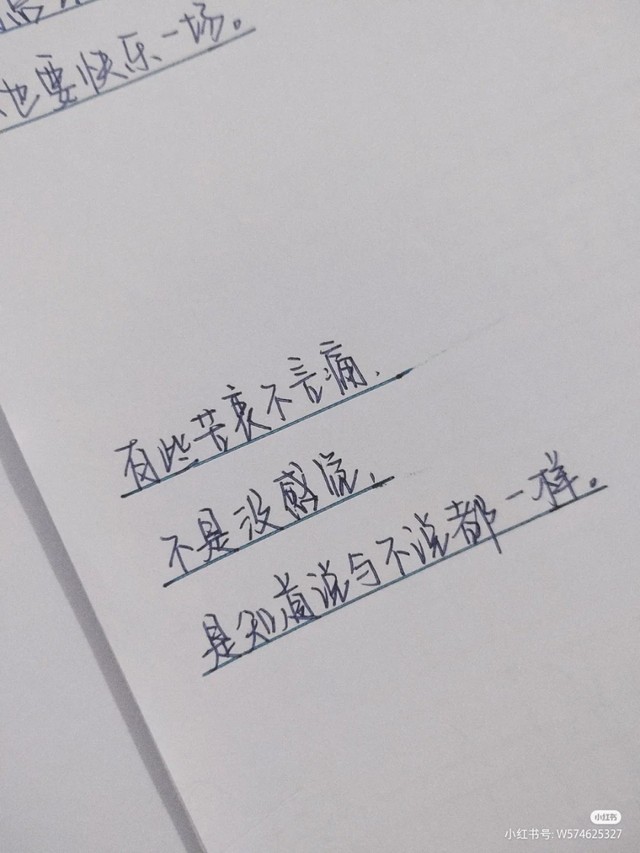 也要快乐一场。
有些苦衷不言痛，
不是没感觉，
是知道说与不说都一样。
小红书
小红书号: W574625327